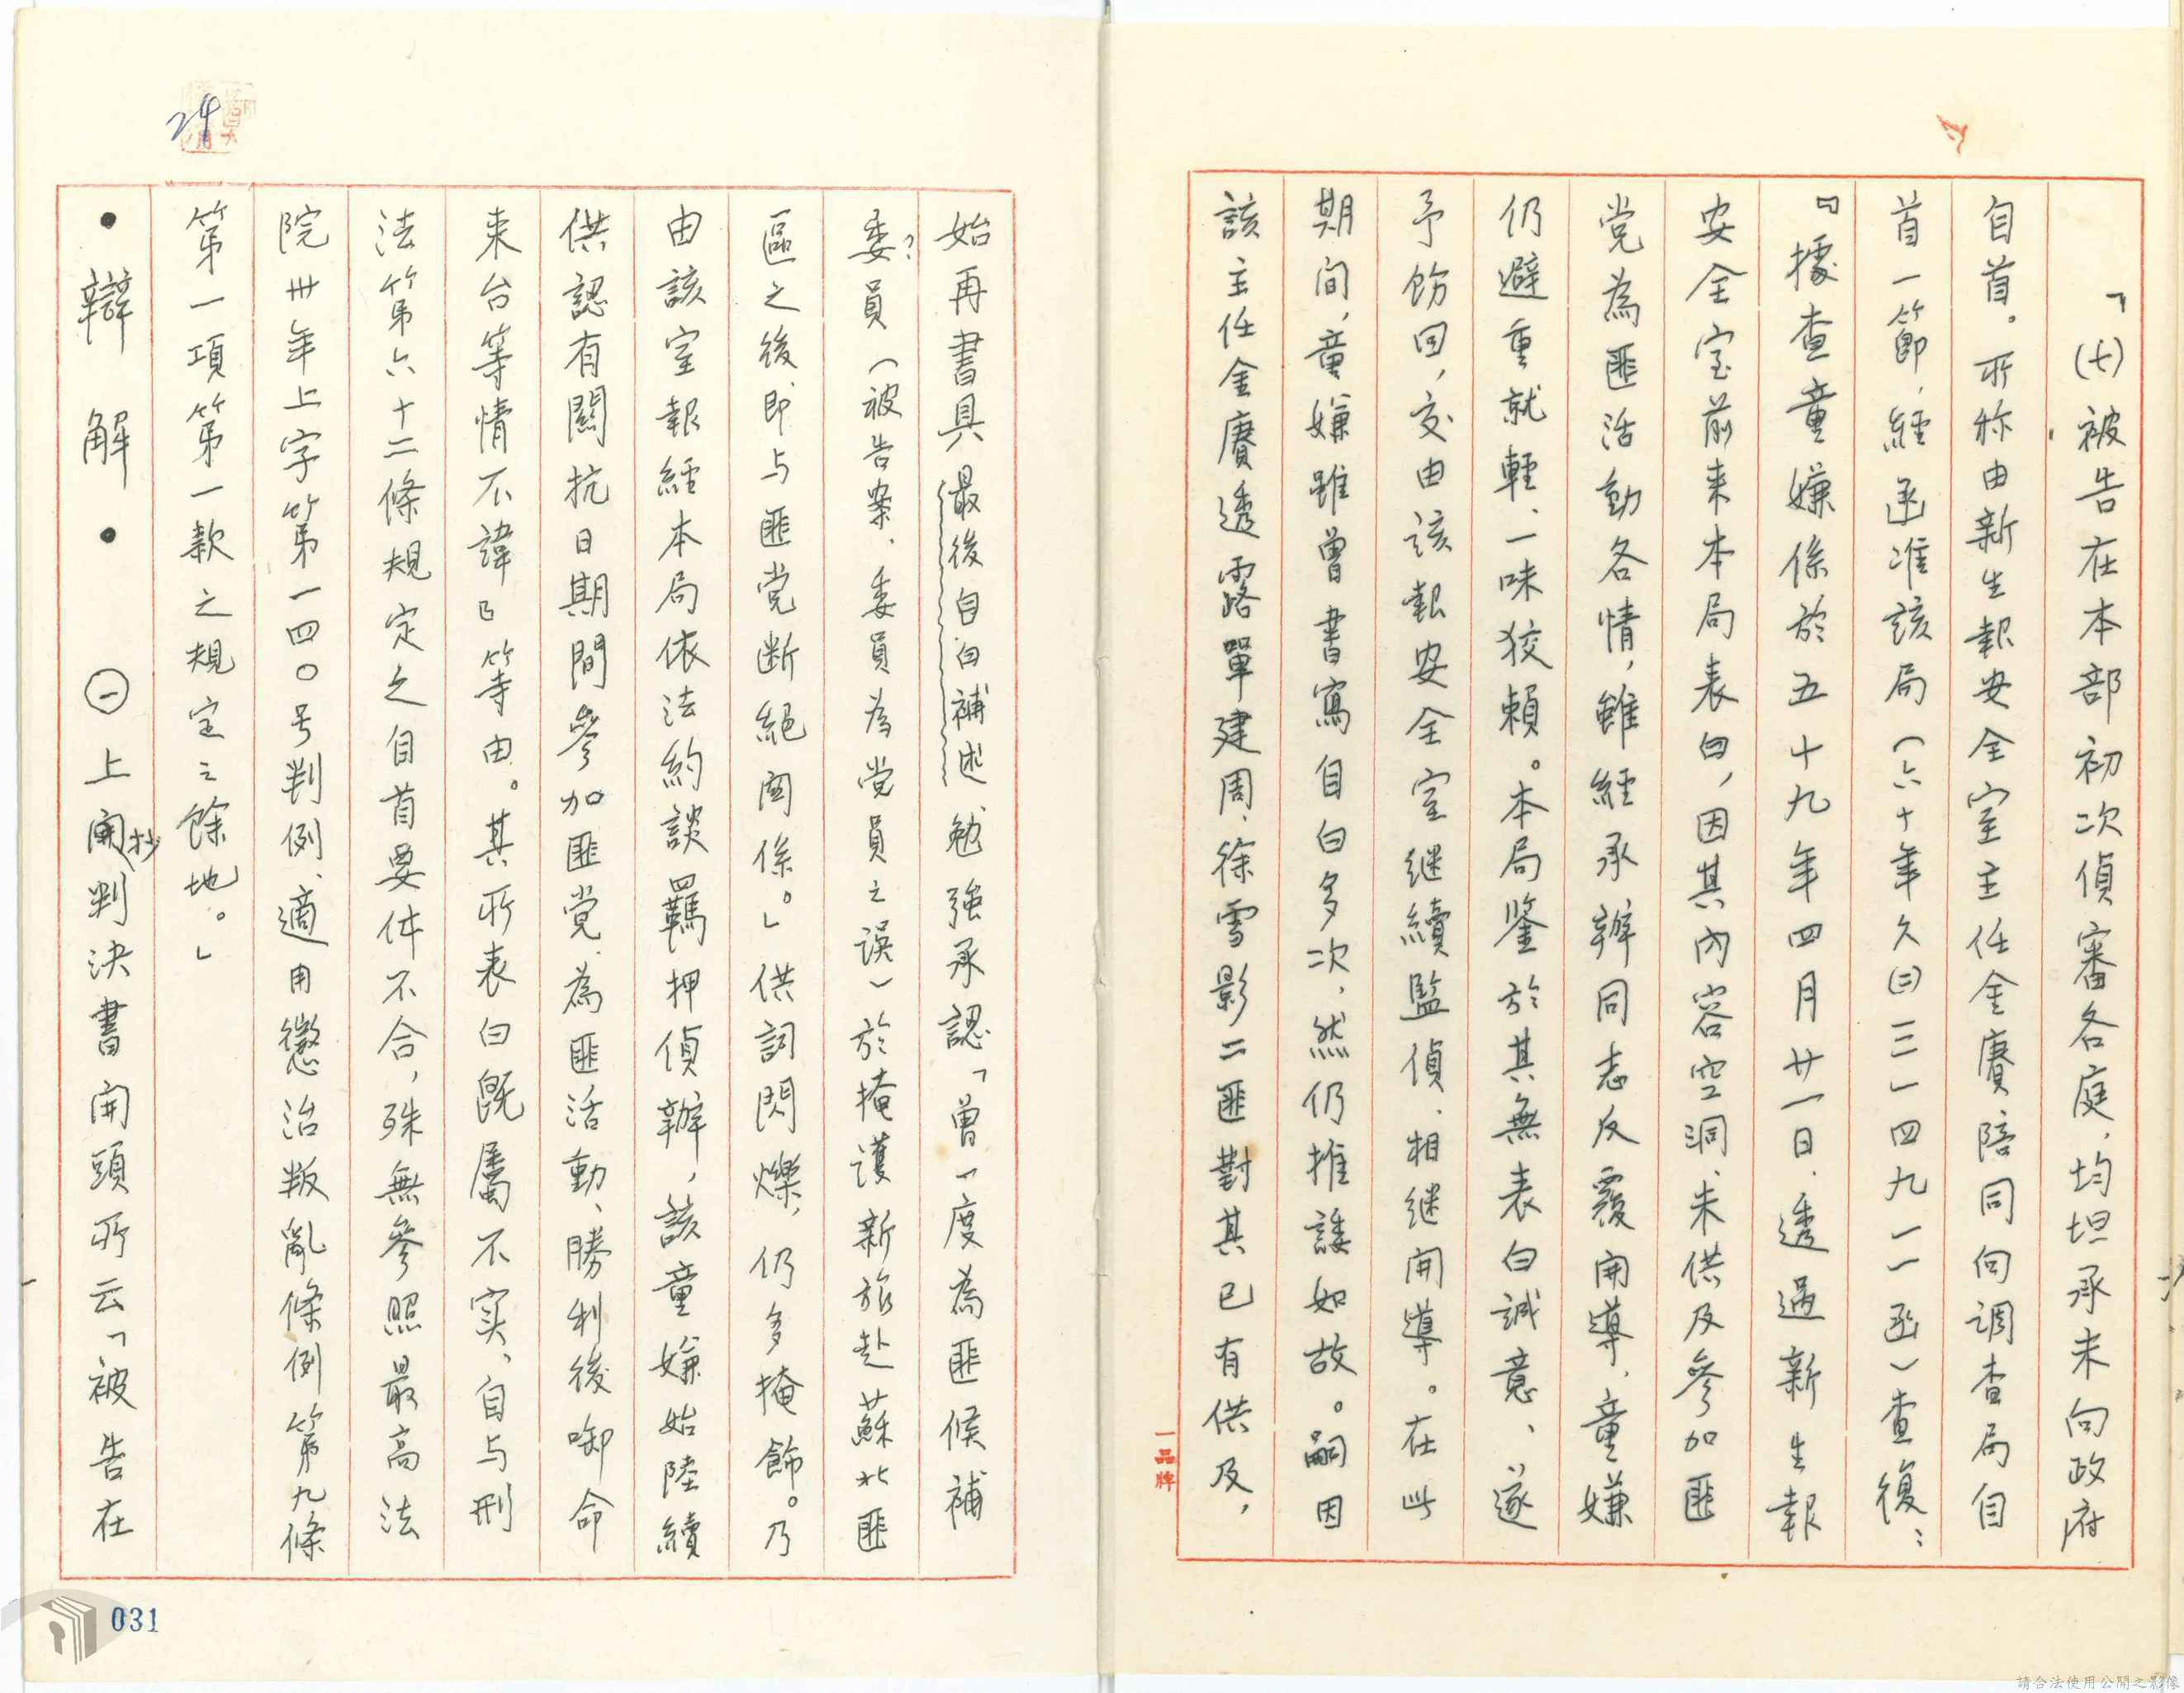 「(七)被告在本部初次偵審各庭，均坦承未向政府
自首。所称由新生報安全室主任金賡陪同向調查局自
首一節，經函准該局（六十年久㈢三一四九一一函）查復：
『據查童嫌係於五十九年四月廿一日，透過新生報
安全室前来本局表白，因其內容空洞、未供及參加匪
党為匪活動各情，雖經承辦同志反覆開導，童嫌
仍避重就輕、一味狡賴。本局鑒於其無表白誠意、遂
予飭回，交由該報安全室继續監偵、相继開導。在此
期间，童嫌雖曾書寫自白多次，然仍推諉如故。嗣因
該主任金賡透露單建周、徐雪影二匪對其已有供及，
始再書具最後自白補述、勉強承認「曾一度為匪候補
委?員（被告案、委員為党員之误）於掩護新旅赴蘇北匪
區之後，即与匪党断絕関係。」供詞閃爍，仍多掩飾。乃
由該室報經本局依法約談羈押偵辦，該童嫌始陸續
供認有關抗日期間參加匪党、為匪活動、勝利後啣命
来台等情不諱』等由。其所表白既屬不实、自与刑
法第六十二條規定之自首要件不合，殊無參照最高法
院卅年上字第一四〇号判例、適用懲治叛亂條例第九條
第一項第一款之規定之餘地。」
•辯解• ㊀上開抄判決書開頭所云「被告在
24
031
一品牌
請合法使用公開之影像